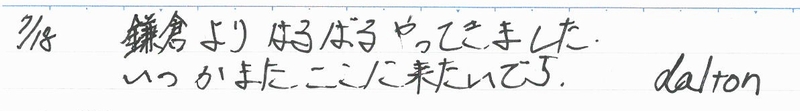 7/18 鎌倉よりはるばるやってきました.
いつかまたここに来たいです. dalton